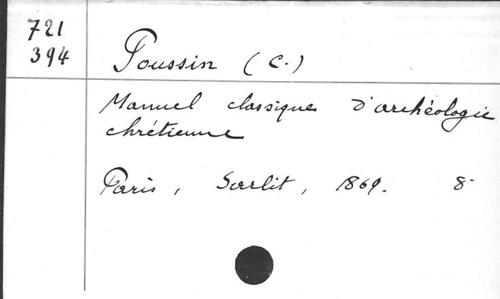 721
394
Poussin (C.)
Manuel classique d'archéologie
chrétienne
Paris, Sarlit, 1869. 8-